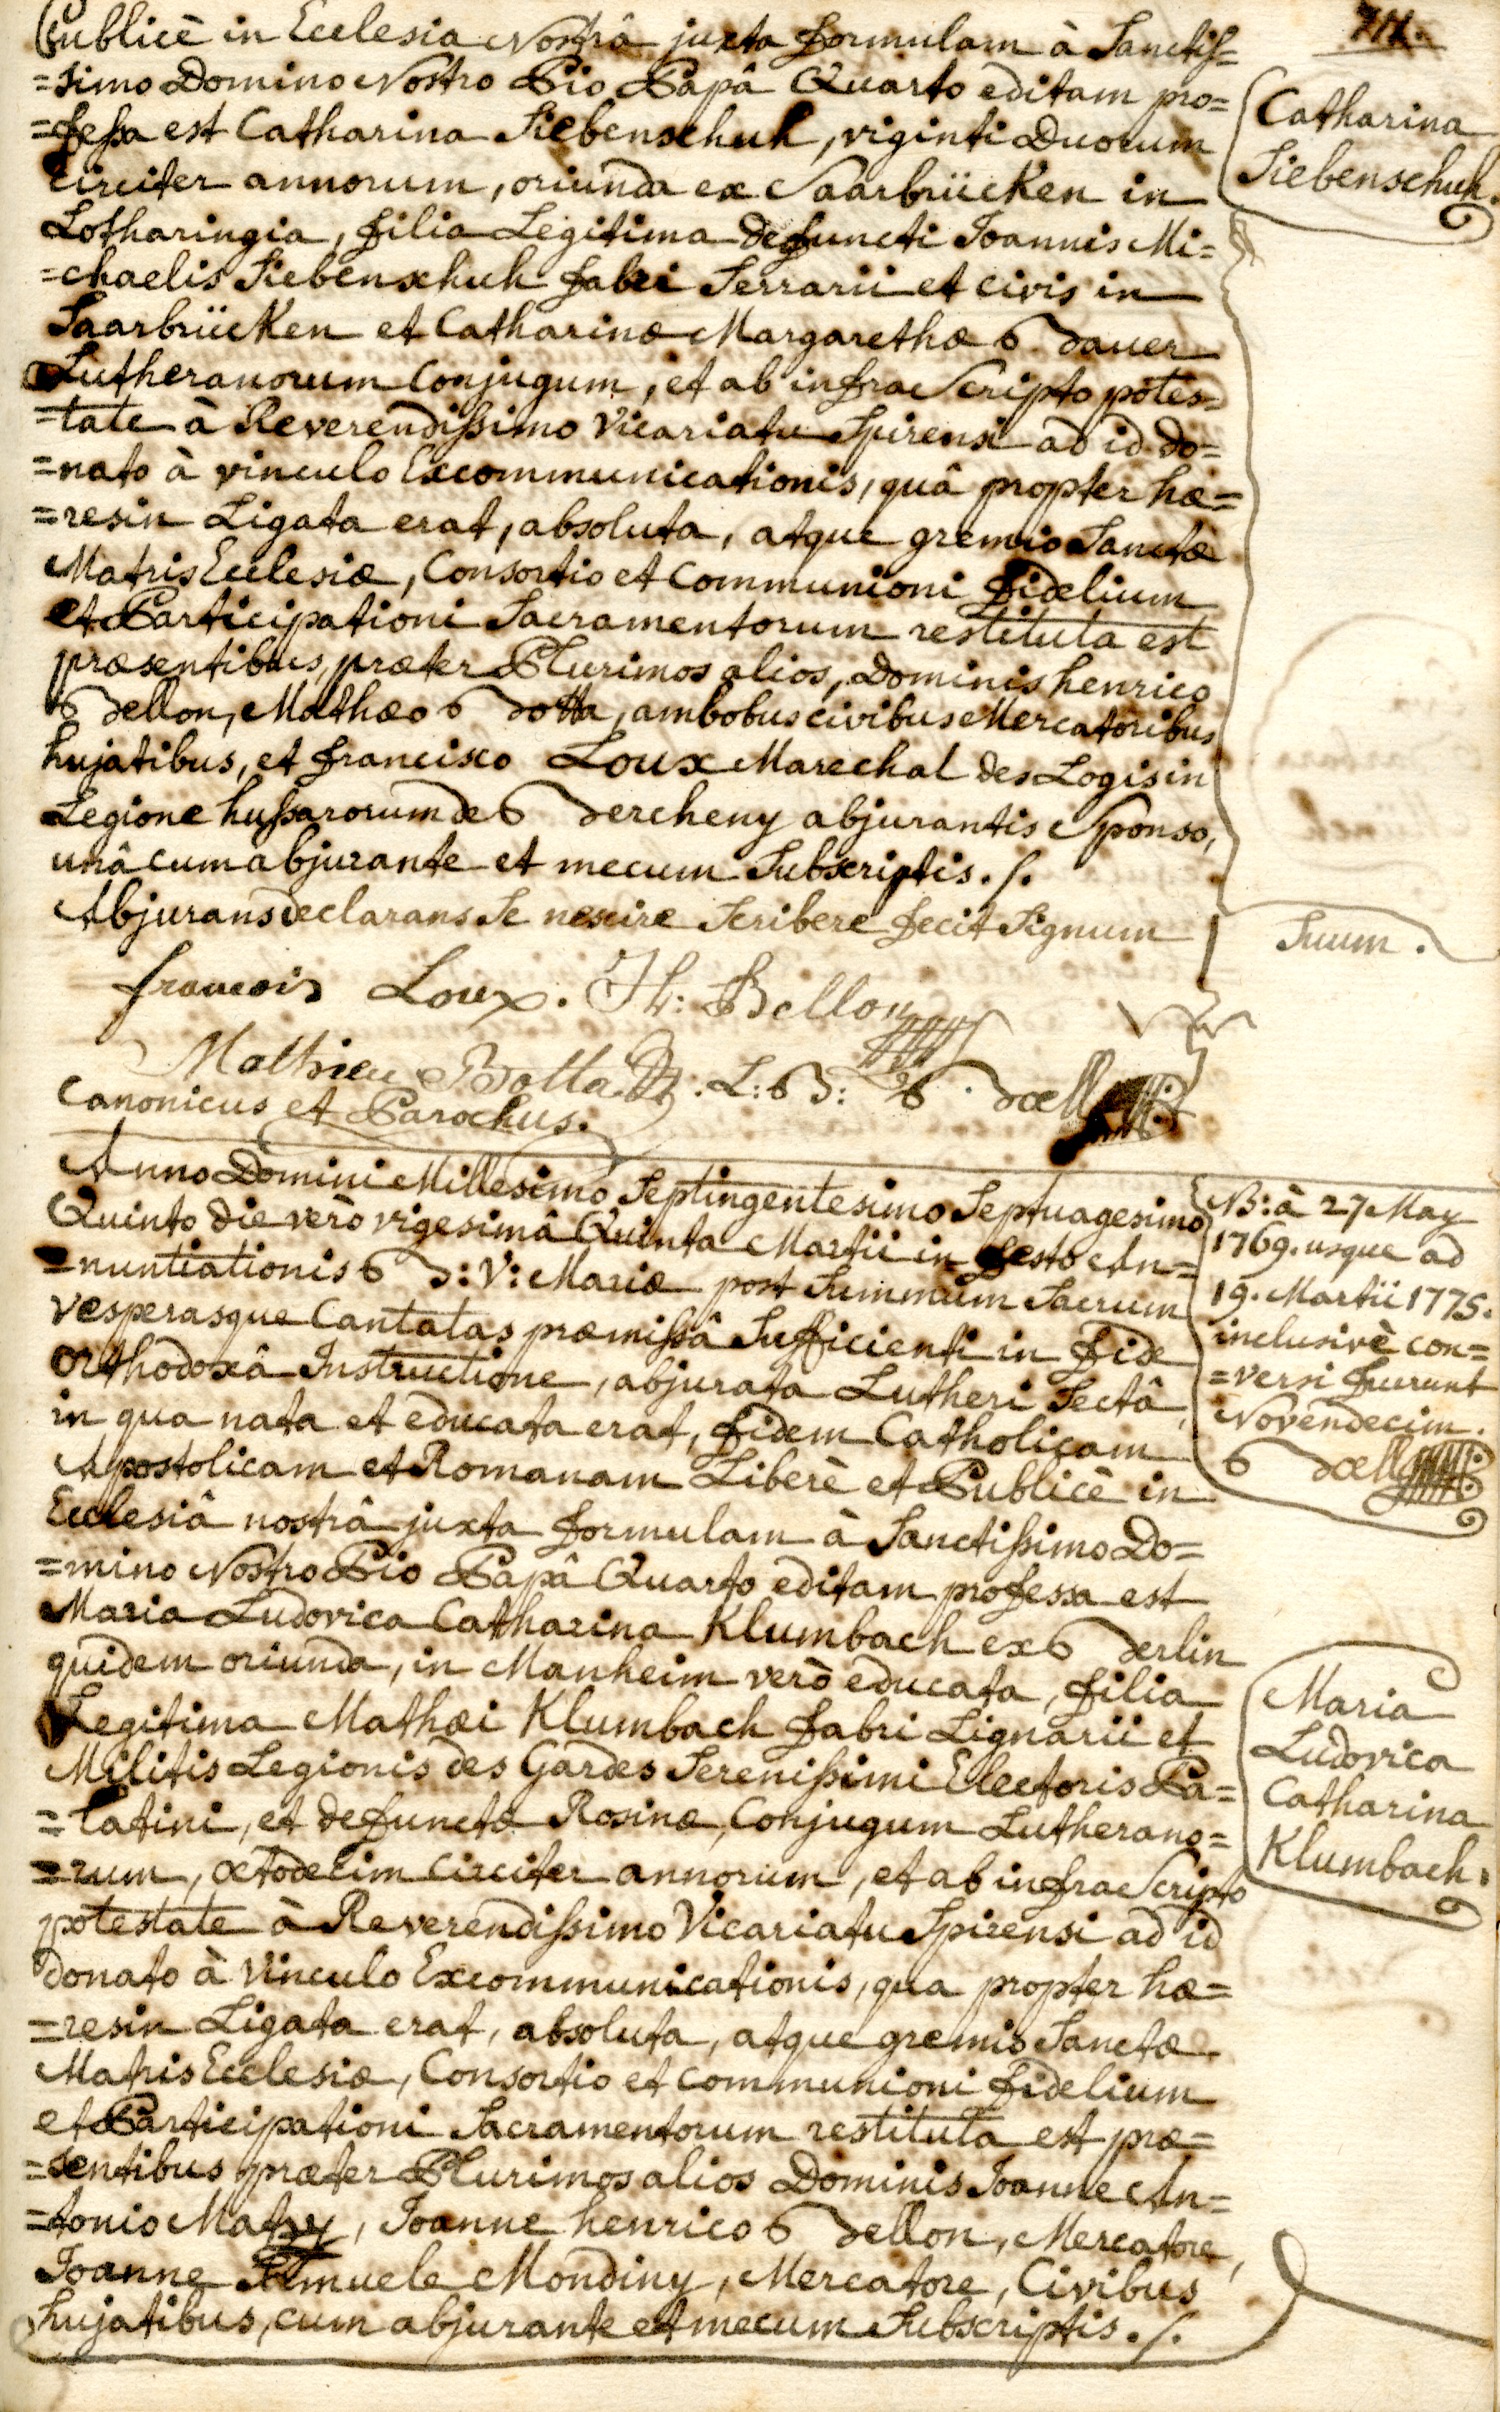 Publicè in Ecclesia Nostrâ juxta formulam à Sanctis=
=simo Domino Nostro Pio Papâ Quarto editam pro=
=fessa est Catharina Siebenschuh, viginti Duorum
circiter annorum, oriunda ex Saarbrücken in
Lotharingia, filia Legitima defuncti Joannis Mi=
=chaelis Siebenschuh fabri Ferrarii et civis in
Saarbrücken et Catharinæ Margarethæ Bauer
Lutheranorum Conjugum, et ab infra Scripto potes=
=tate à Reverendissimo Vicariatu Spirensi ad id do=
=nato à vinculo Excommunicationis, quâ propter hæ=
=resin Ligata erat, absoluta, atque gremio Sanctæ
Matris Ecclesiæ, Consortio et Communioni fidelium
et Participationi Sacramentorum restituta est
præsentibus, præter Plurimos alios, Dominis henrico
Bellon, Mathæo Botta, ambobus civibus Mercatoribus
hujatibus, et francisco Loux Marechal des Logis in
Legione hussarorum de Bercheny abjurantis Sponso,
unâ cum abjurante et mecum Subscriptis ./.
Abjurans declarans Se nescire Scribere fecit Signum Suum.
francois Loux. H: Bellon
Mathieu Botta . L: B: Bœll
Canonicus et Parochus.
Catharina
Siebenschuh.
Anno Domini Millesimo Septingentesimo Septuagesimo
Quinto die verò vigesimâ Quinta Martii in festo An=
=nuntiationis B: V: Mariæ post Summum Sacrum
Vesperasque Cantatas præmissâ Sufficienti in fide
Orthodoxâ Instructione, abjurata Lutheri Sectâ,
in qua nata et educata erat, fidem Catholicam
Apostolicam et Romanam Liberè et Publicè in
Ecclesiâ nostrâ juxta formulam à Sanctissimo Do=
=mino Nostro Pio Papâ Quarto editam professa est
Maria Ludovica Catharina Klumbach ex Berlin
quidem oriunda, in Manheim verò educata, filia
Legitima Mathæi Klumbach fabri Lignarii et
Militis Legionis des Gardes Serenissimi Electoris Pa=
=latini, et defunctæ Rosinæ, Conjugum Lutherano=
=rum, octodecim circiter annorum, et ab infra Scripto
potestate à Reverendissimo Vicariatu Spirensi ad id
donato à Vinculo Excommunicationis, qua propter hæ=
=resin Ligata erat, absoluta, atque gremio Sanctæ
Matris Ecclesiæ, Consortio et Communioni fidelium
et Participationi Sacramentorum restituta est præ=
=sentibus præter Plurimos alios Dominis Joanne An=
=tonio Mathy, Joanne henrico Bellon, Mercatore,
Joanne Samuele Mondiny, Mercatore, Civibus
hujatibus, cum abjurante et mecum Subscriptis ./.
NB: à 27 May
1769. usque ad
19. Martii 1775.
inclusivè con=
=versi fuerunt
Novendecim.
Bœll
Maria
Ludovica
Catharina
Klumbach.